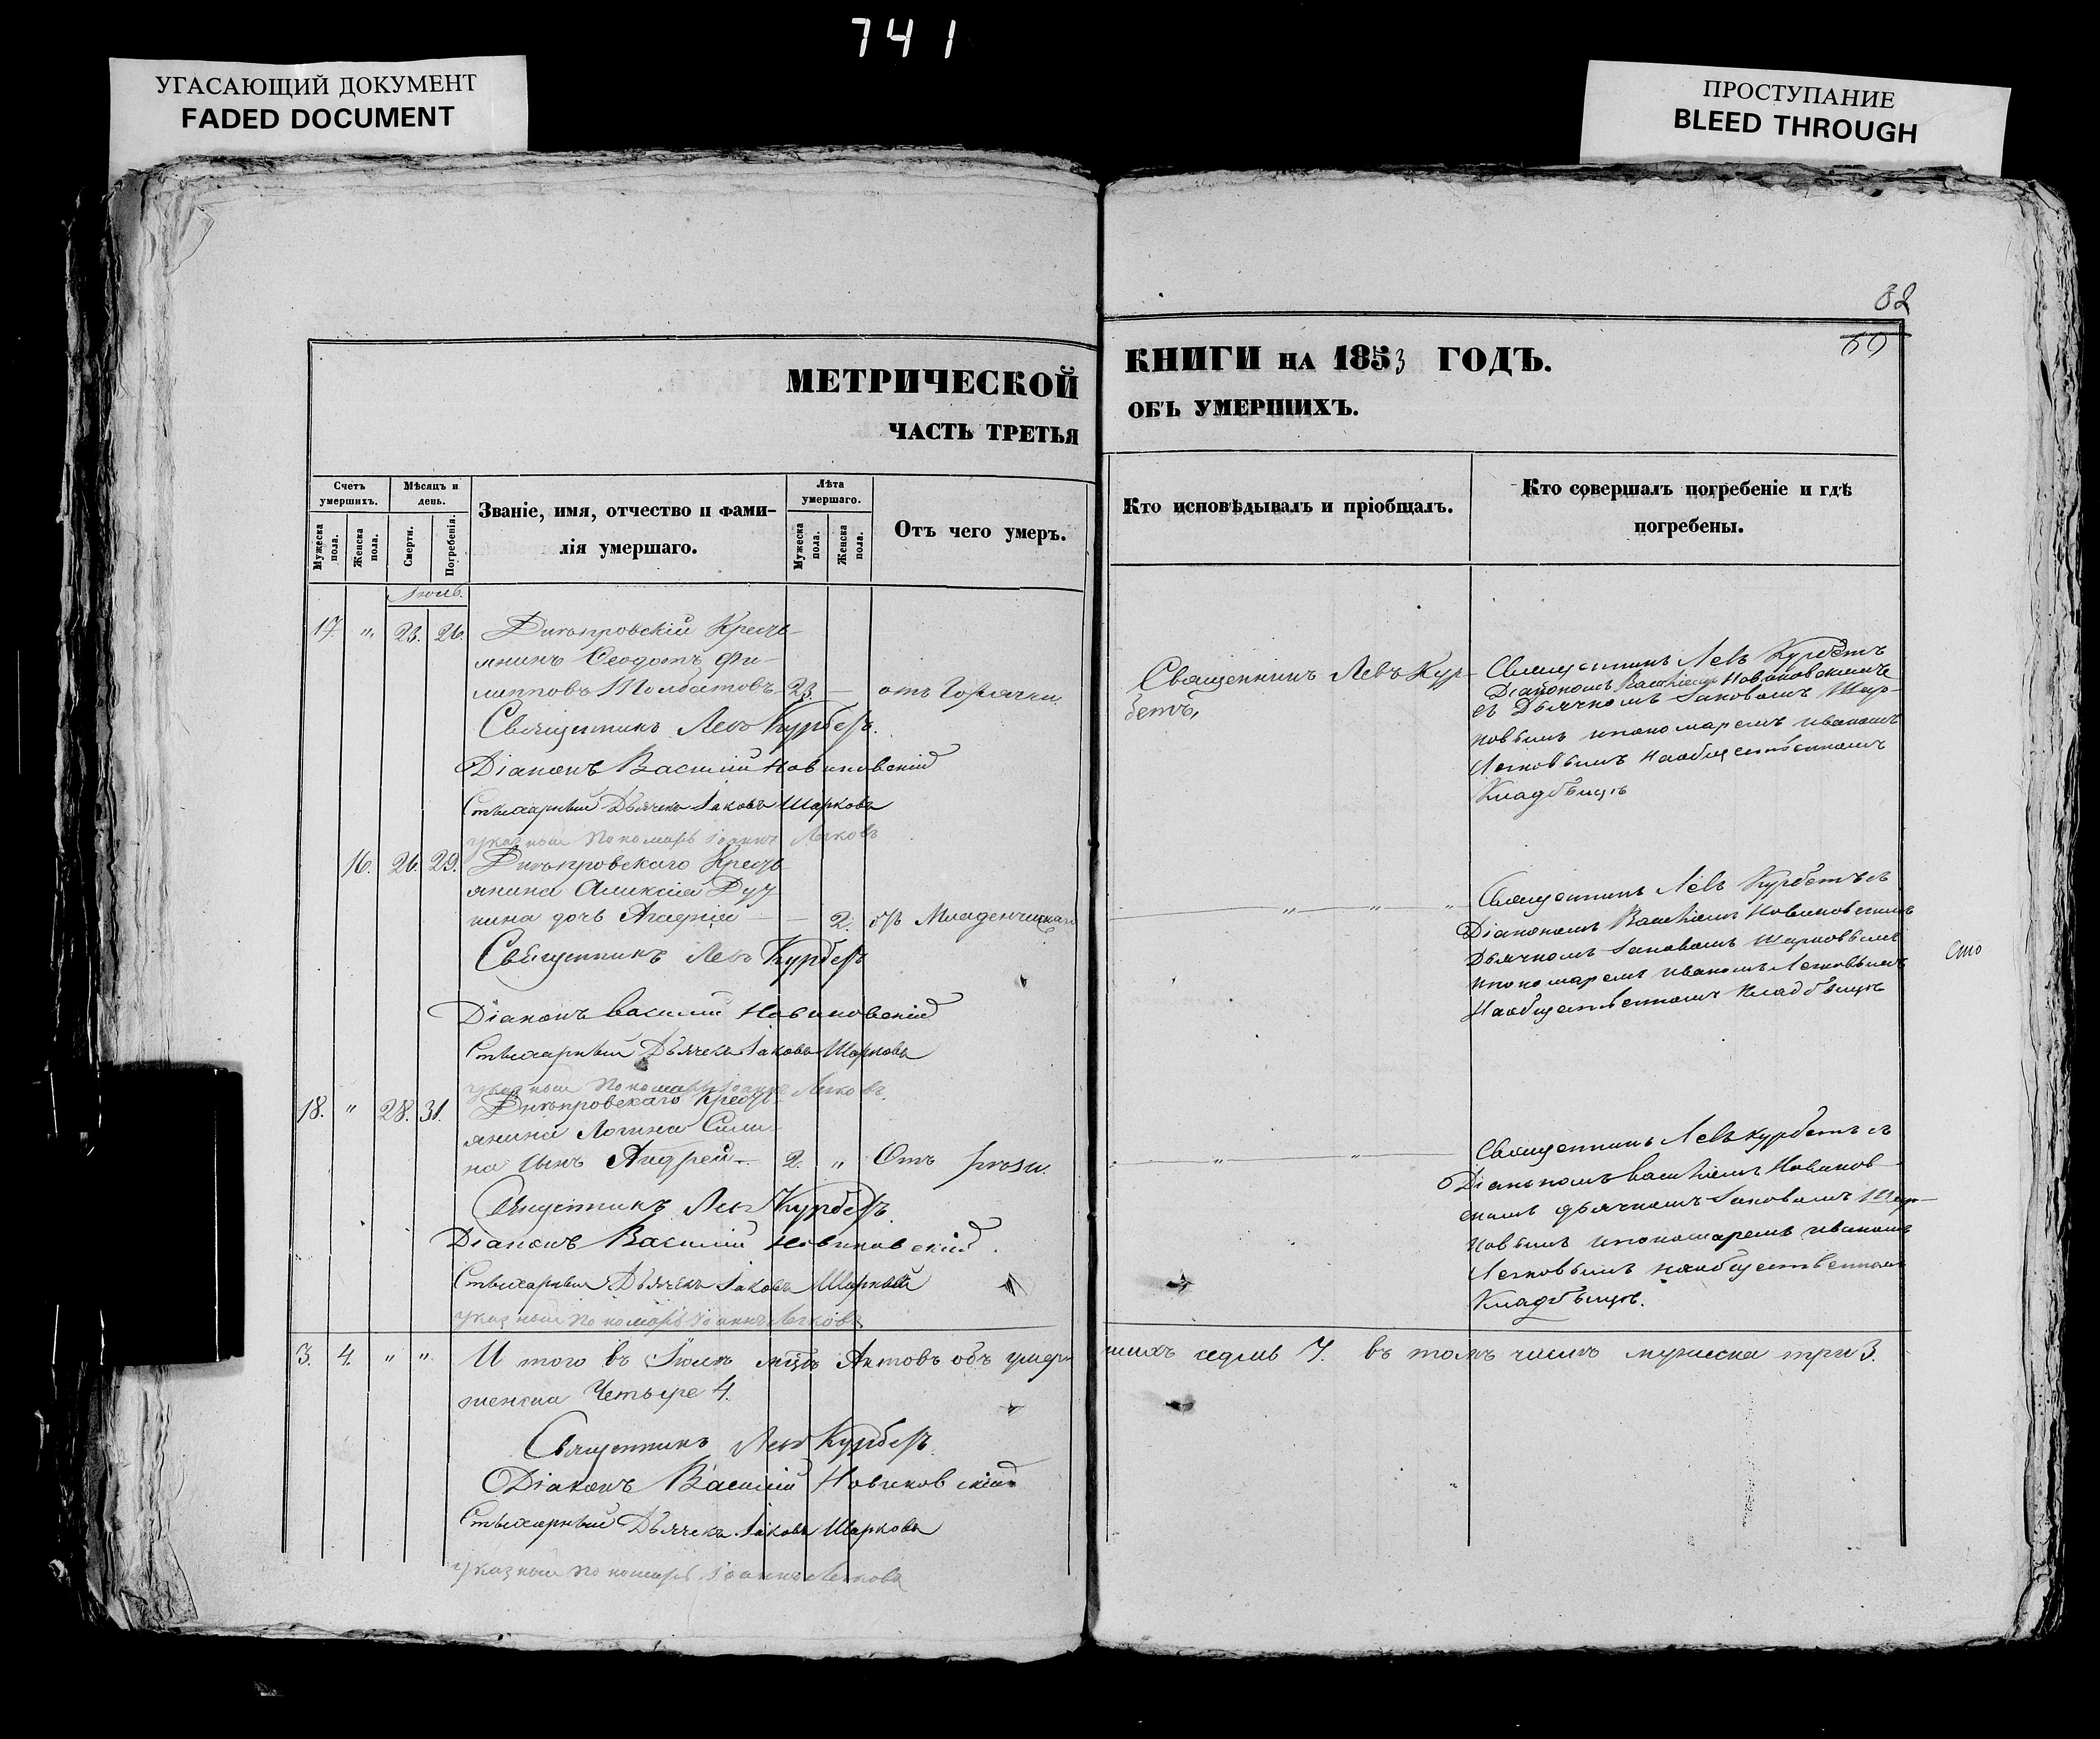 741
УГАСАЮЩИЙ ДОКУМЕНТ
FADED DOCUMENT
ПРОСТУПАНИЕ
BLEED THROUGH
82
69
МЕТРИЧЕСКОЙ
ЧАСТЬ ТРЕТЬЯ
Счетъ умершихъ.
Мужеска пола.
Женска пола.
Мѣсяцъ и день.
Смерти.
Погребенія.
Званіе, имя, отчество и фами-
лія умершаго.
Лѣта умершаго.
Мужеска пола.
Женска пола.
Отъ чего умеръ.
Іюль.
17. " 23. 26. Днѣпровскій Кресть-
янинъ Ѳеодотъ Фи-
липповъ Толбатовъ 23. — отъ Горячки.
Священникъ Левъ Курбетъ.
Діаконъ Василій Новиковскій
Стихарный Дьячекъ Іаковъ Шарковъ
указный Пономарь Іоаннъ Легковъ
16. 26. 29. Днѣпровскаго Кресть-
янина Алексія Дуд-
кина дочь Агафія — — 2. отъ Младенческаго
Священникъ Левъ Курбетъ
Діаконъ Василій Новиковскій
Стихарный Дьячекъ Іаковъ Шарковъ
указный Пономарь Іоаннъ Легковъ.
18. " 28. 31. Днѣпровскаго Кресть-
янина Логина Сили-
на сынъ Андрей — 2. " Отъ
Священникъ Левъ Курбетъ.
Діаконъ Василій Новиковскій.
Стихарный Дьячекъ Іаковъ Шарковъ
указный Пономарь Іоаннъ Легковъ
3. 4. " " И того въ Іюлѣ мцѣ Актовъ объ умер-
женска Четыре 4.
Священникъ Левъ Курбетъ.
Діаконъ Василій Новиковскій
Стихарный Дьячекъ Іаковъ Шарковъ
указный Пономарь Іоаннъ Легковъ
КНИГИ НА 1853 ГОДЪ.
ОБЪ УМЕРШИХЪ.
Кто исповѣдывалъ и пріобщалъ.
Кто совершалъ погребеніе и гдѣ
погребены.
Священникъ Левъ Кур-
бетъ,
Священникъ Левъ Курбетъ
Діакономъ Василіемъ Новиковскимъ
съ Дьячкомъ Іаковомъ Шар-
ковымъ и пономаремъ Иваномъ
Легковымъ на общественномъ
Кладбищѣ
— " — " — "
Священникъ Левъ Курбетъ съ
Діакономъ Василіемъ Новиковскимъ
Дьячкомъ Іаковомъ Шарковымъ
и пономаремъ Иваномъ Легковымъ
На общественномъ Кладбищѣ
сто
— " — " —
Священникъ Левъ Курбетъ съ
Діакономъ Василіемъ Новиков-
скимъ дьячкомъ Іаковомъ Шар-
ковымъ и пономаремъ Иваномъ
Легковымъ на общественномъ
Кладбищѣ.
шихъ седмь 7. въ томъ числѣ мужеска три 3.